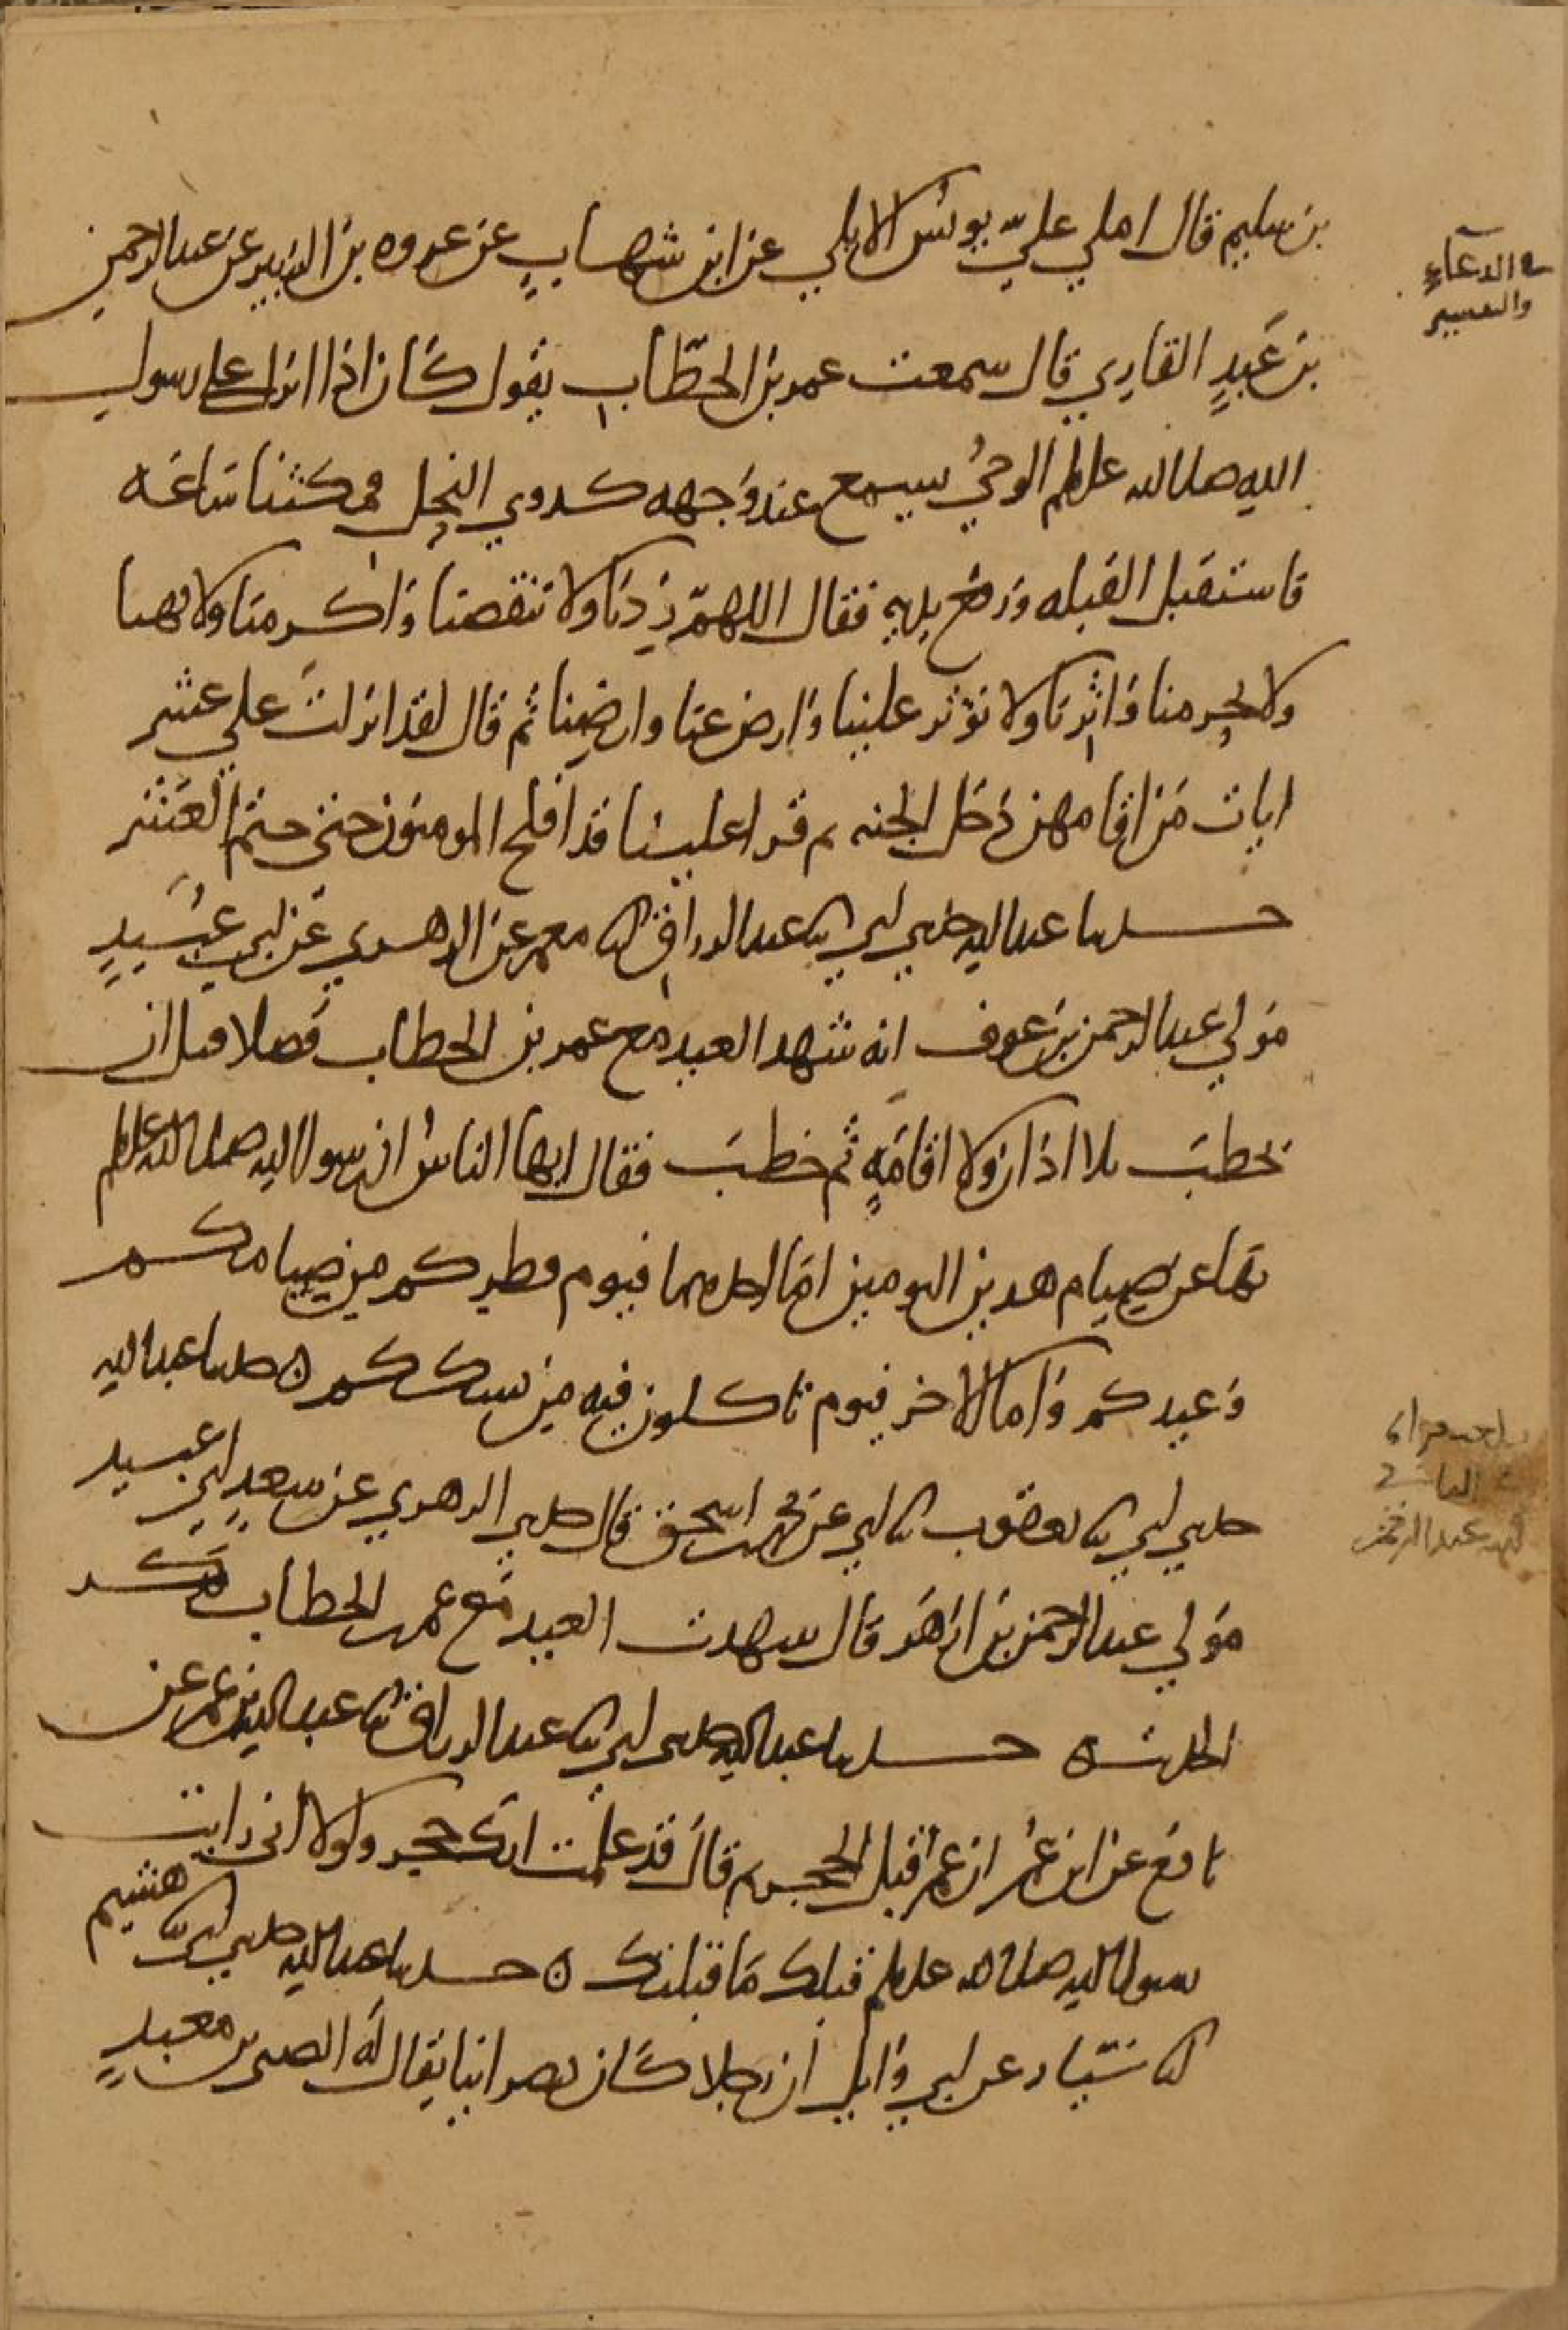 بن سليم قال املي عليّ يونس الايلي عن ابن شهاب عن عروه بن الزبير عن عبد الرحمن
في الدعاء
والتفسير
بن عَبدٍ القاري قال سمعت عمر بن الخطّاب يقول كان اذا انزل على رسول
الله صلى الله عليه وسلم الوحيُ يسمع عند وَجهه كدوي النحل فمكثنا ساعه
فاستقبل القبله وَرفع يديه فقال اللهمّ زِدنا ولا تنقصنا وَاكرمنا ولا تهنا
ولا تحرمنا وَاثِرنا ولا تؤثر علينا وَارض عنا وارضِنا ثم قال لقد انزلتَ علي عشر
ايات مَن اقامهن دَخَل الجنه ثم قرا علينا قد افلح المومنون حتى ختم العَشر
حدثنا عبد الله حدثني ابي ثنا عبد الرزاق انا معمر عن الزهري عَن ابي عُبَيدٍ
مَولي عبد الرحمن بن عوف انه شهد العيد مع عمر بن الخطاب فصلا قبل ان
يخطبَ بلا اذان ولا اقامَةٍ ثم خطبَ فقال ايها الناسُ ان رسول الله صلى الله عليه وسلم
نها عن صيام هذين اليومين امّا احدهما فيوم فطركم من صيامكم
وَعيدكم وَاما الاخر فيوم تاكلون فيه من نسككم ٥ حدثنا عبد الله
حدثني ابي ثنا يعقوب ثنا ابي عن محمد بن اسحق قال حدثني الزهري عن سعدٍ ابي عبيد
مَولي عبد الرحمن بن ازهَر قال شهدت العيد مَع عمر بن الخطاب فذكر
الحديث ٥ حدثنا عبد الله حدثني ابي ثنا عبد الرزاق ثنا عبد الله بن عمر عن
نافع عن ابن عُمر ان عمر قبل الحجر ثم قال قد علمت انك حجر ولولا اني رايت
رسول الله صلى الله عليه وسلم قبلك مَا قبلتك ٥ حدثنا عبد الله حدثني ابي ثنا هشيم
انا سَيّار عن ابي وَايل ان رجلا كان نصرانيا يقال له الصبي بن معبدٍ